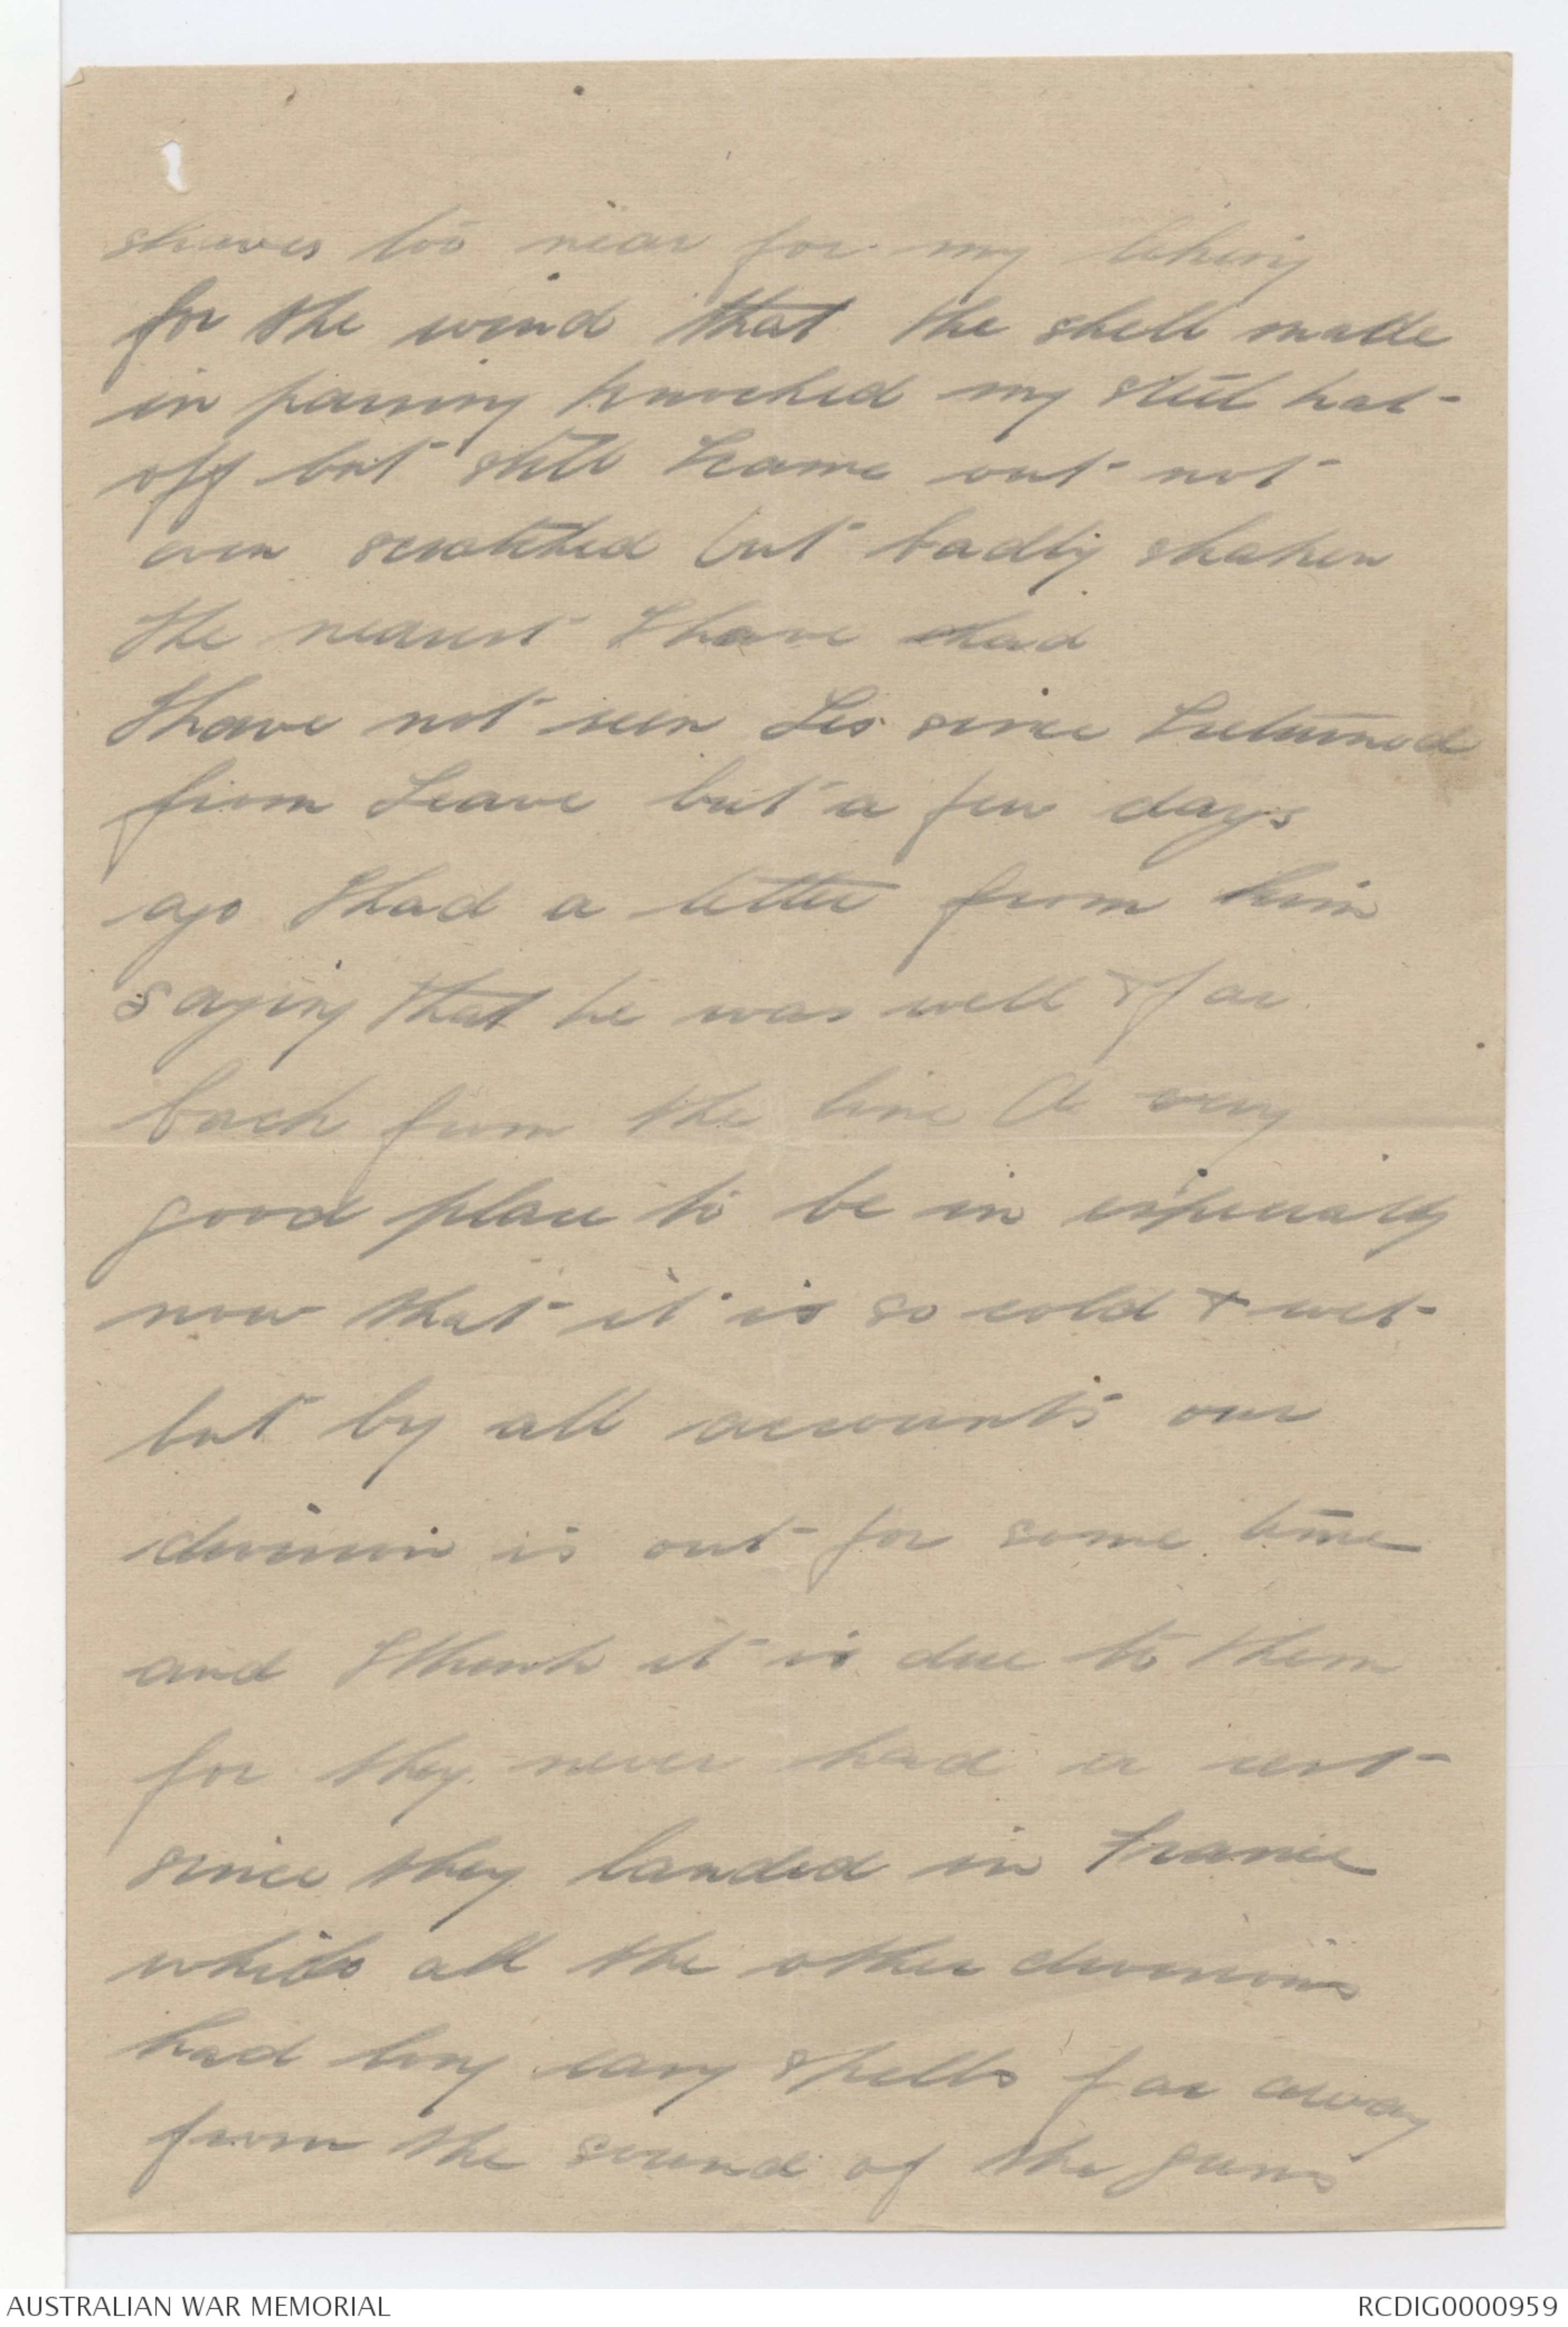 shaves too near for my liking
for the wind that the shell made
in passing knocked my steel hat
off but still I came out not
even scratched but badly shaken
the nearest I have had
I have not seen Les since I returned
from Leave but a few days
ago I had a letter from him
saying that he was well & far
back from the line A very
good place to be in especially
now that it is so cold & wet
but by all accounts our
division is out for some time
and I think it is due to them
for they never had a rest
since they landed in France
while all the other divisions
had long easy spells far away
from the sound of the guns
AUSTRALIAN WAR MEMORIAL
RCDIG0000959